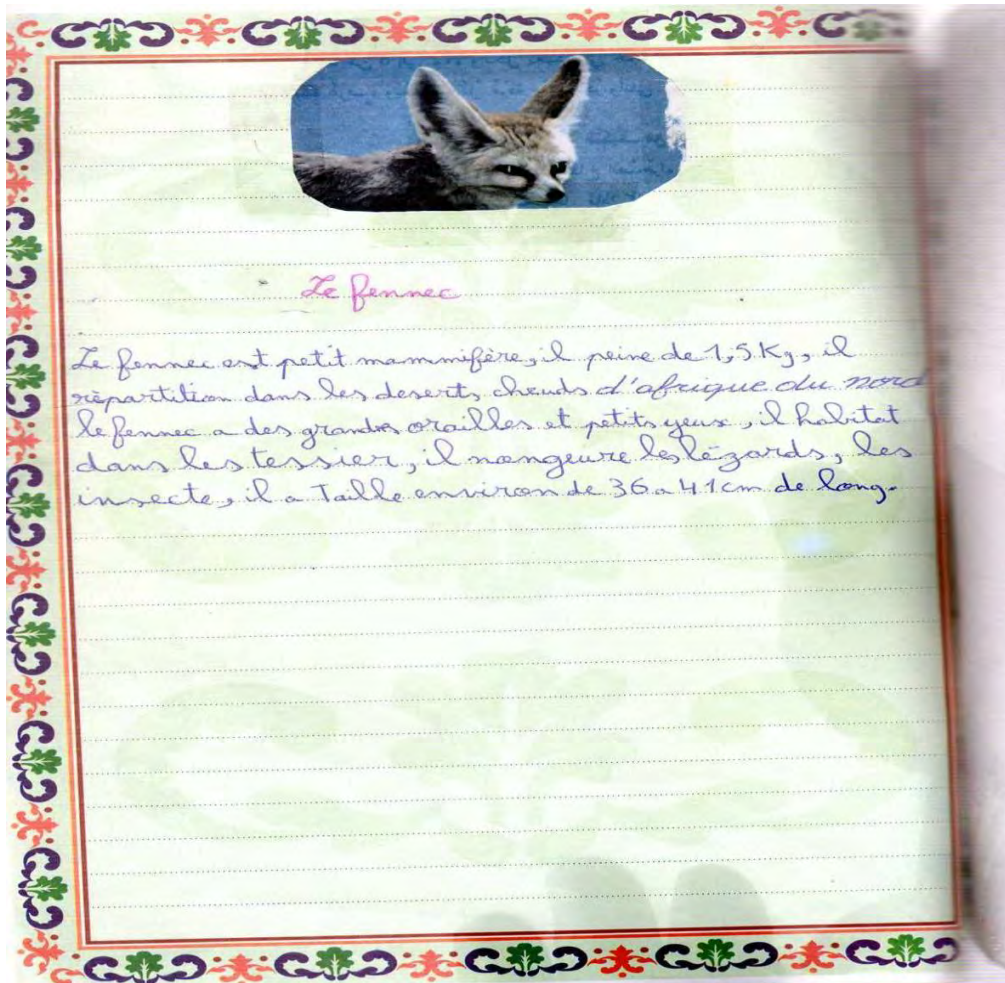 Le fennec
Le fennec est petit mammifère, il peine de 1,5 Kg, il
répartition dans les deserts cheuds d'afrique du nord
le fennec a des grandes orailles et petits yeux, il habitat
dans les tessier, il mangeure les lézards, les
insecte, il a Taille environ de 36 a 41 cm de long.